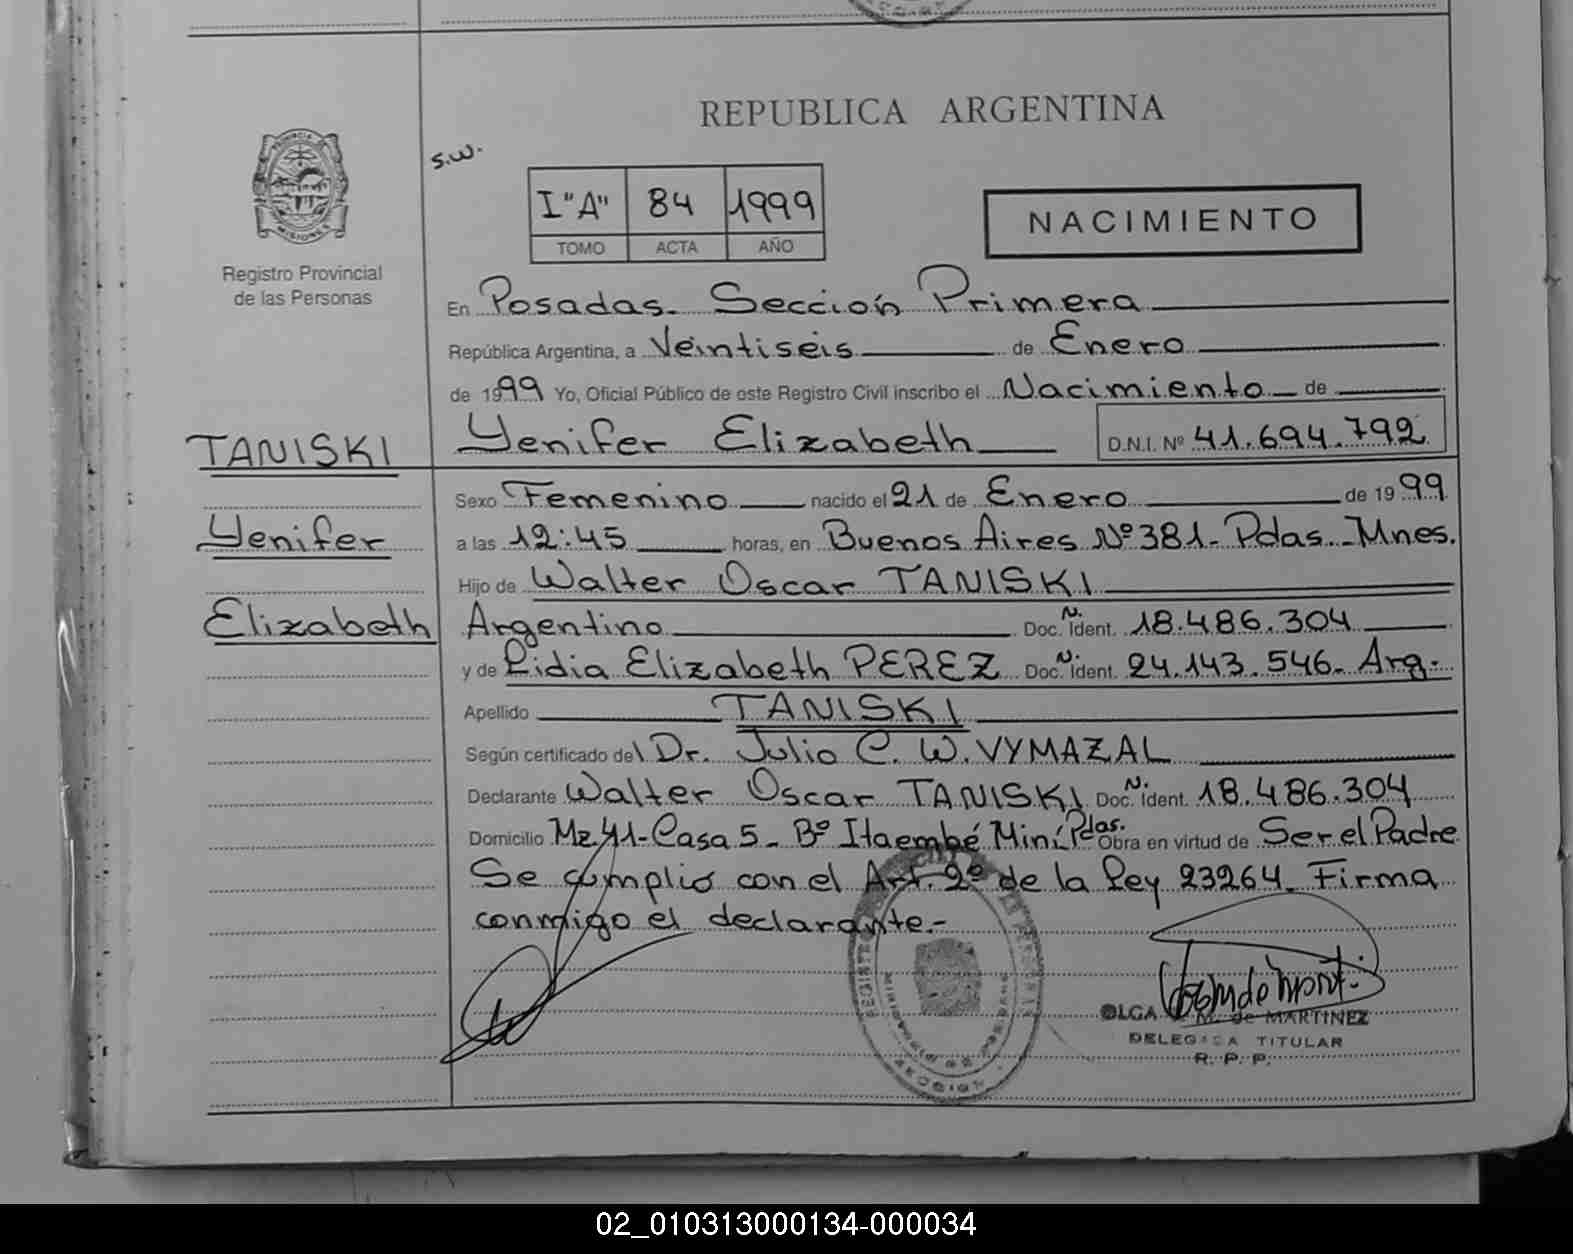 REPUBLICA ARGENTINA
s.w.
I "A" 84 1999
TOMO ACTA AÑO
NACIMIENTO
PROVINCIA DE
MISIONES
Registro Provincial
de las Personas
En Posadas. Sección Primera
República Argentina, a Veintiseis de Enero
de 1999 Yo, Oficial Público de este Registro Civil inscribo el Nacimiento de
Yenifer Elizabeth D.N.I. Nº 41.694.792
TANISKI
Yenifer
Elizabeth
Sexo Femenino nacido el 21 de Enero de 1999
a las 12:45 horas, en Buenos Aires Nº 381-Pdas.-Mnes.
Hijo de Walter Oscar TANISKI
Argentino Doc. N. Ident. 18.486.304
y de Lidia Elizabeth PEREZ Doc. N. Ident. 24.143.546- Arg.
Apellido TANISKI
Según certificado del Dr. Julio C. W. VYMAZAL
Declarante Walter Oscar TANISKI Doc. N. Ident. 18.486.304
Domicilio Mz.41-Casa 5- Bº Itaembé Miní Pdas. Obra en virtud de Ser el Padre
Se cumplió con el Art. 2º de la Ley 23264. Firma
conmigo el declarante.-
OLGA M. de MARTINEZ
DELEGADA TITULAR
R. P. P.
02_010313000134-000034